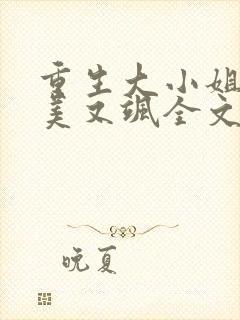 重生大小姐
美又飒全文
晚夏